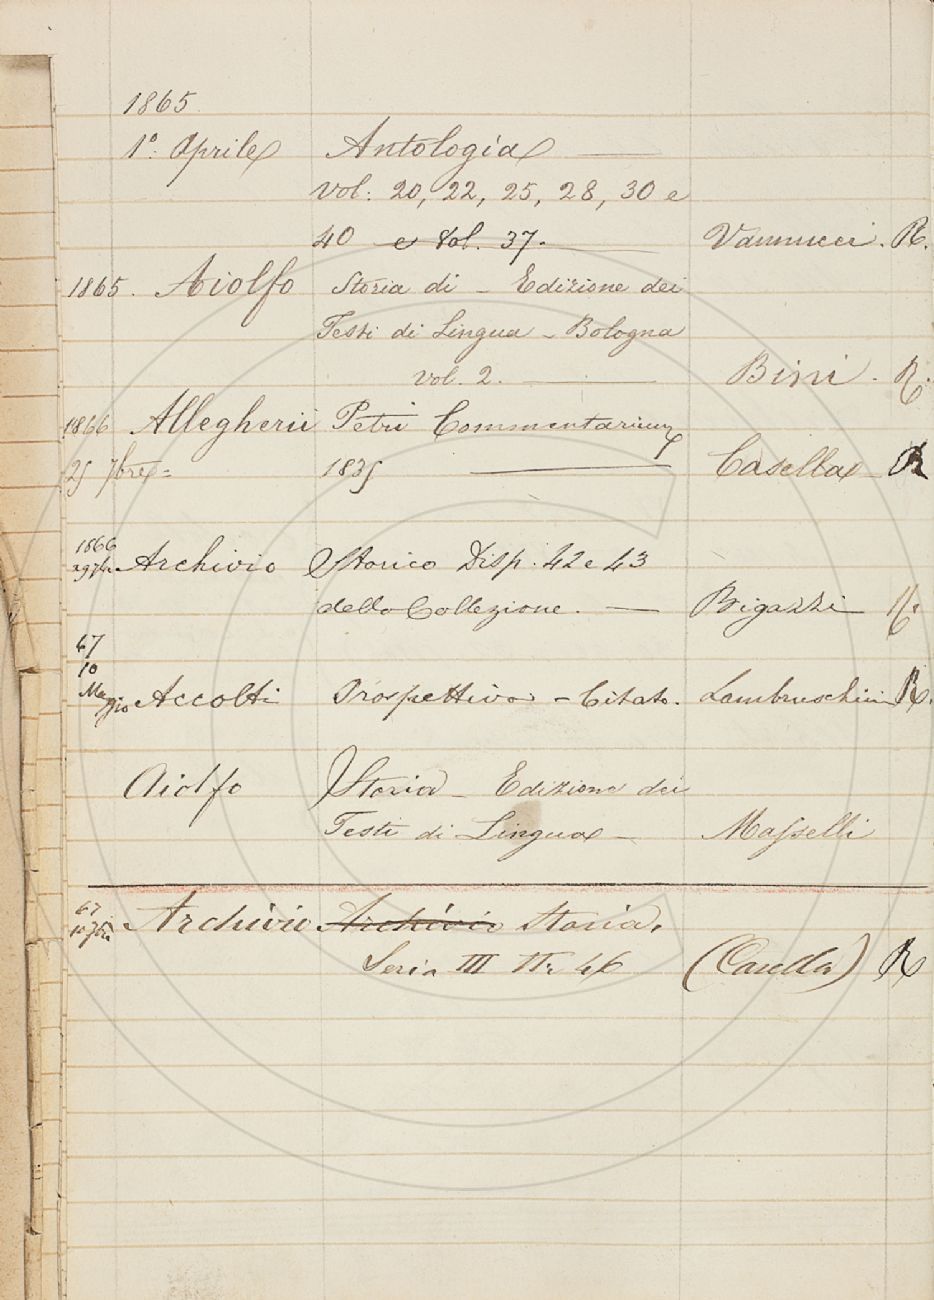 1865
1° Aprile Antologia
vol: 20, 22, 25, 28, 30 e
40 e Vol. 37. Vannucci. R.
1865. Aiolfo Storia di - Edizione dei
Testi di Lingua - Bologna
vol. 2. Bini. R.
1866 Allegherii Petri Commentarium
25 7bre = 1835 Casella R
1866
Archivio Storico Disp. 42 e 43
della Collezione. Bigazzi R.
67
10
Maggio Accolti Prospettiva - Citato. Lambruschini R.
Aiolfo Storia - Edizione dei
Testi di Lingua - Masselli
67
Archivio Archivio Storia.
Seria III 46 (Casella) R